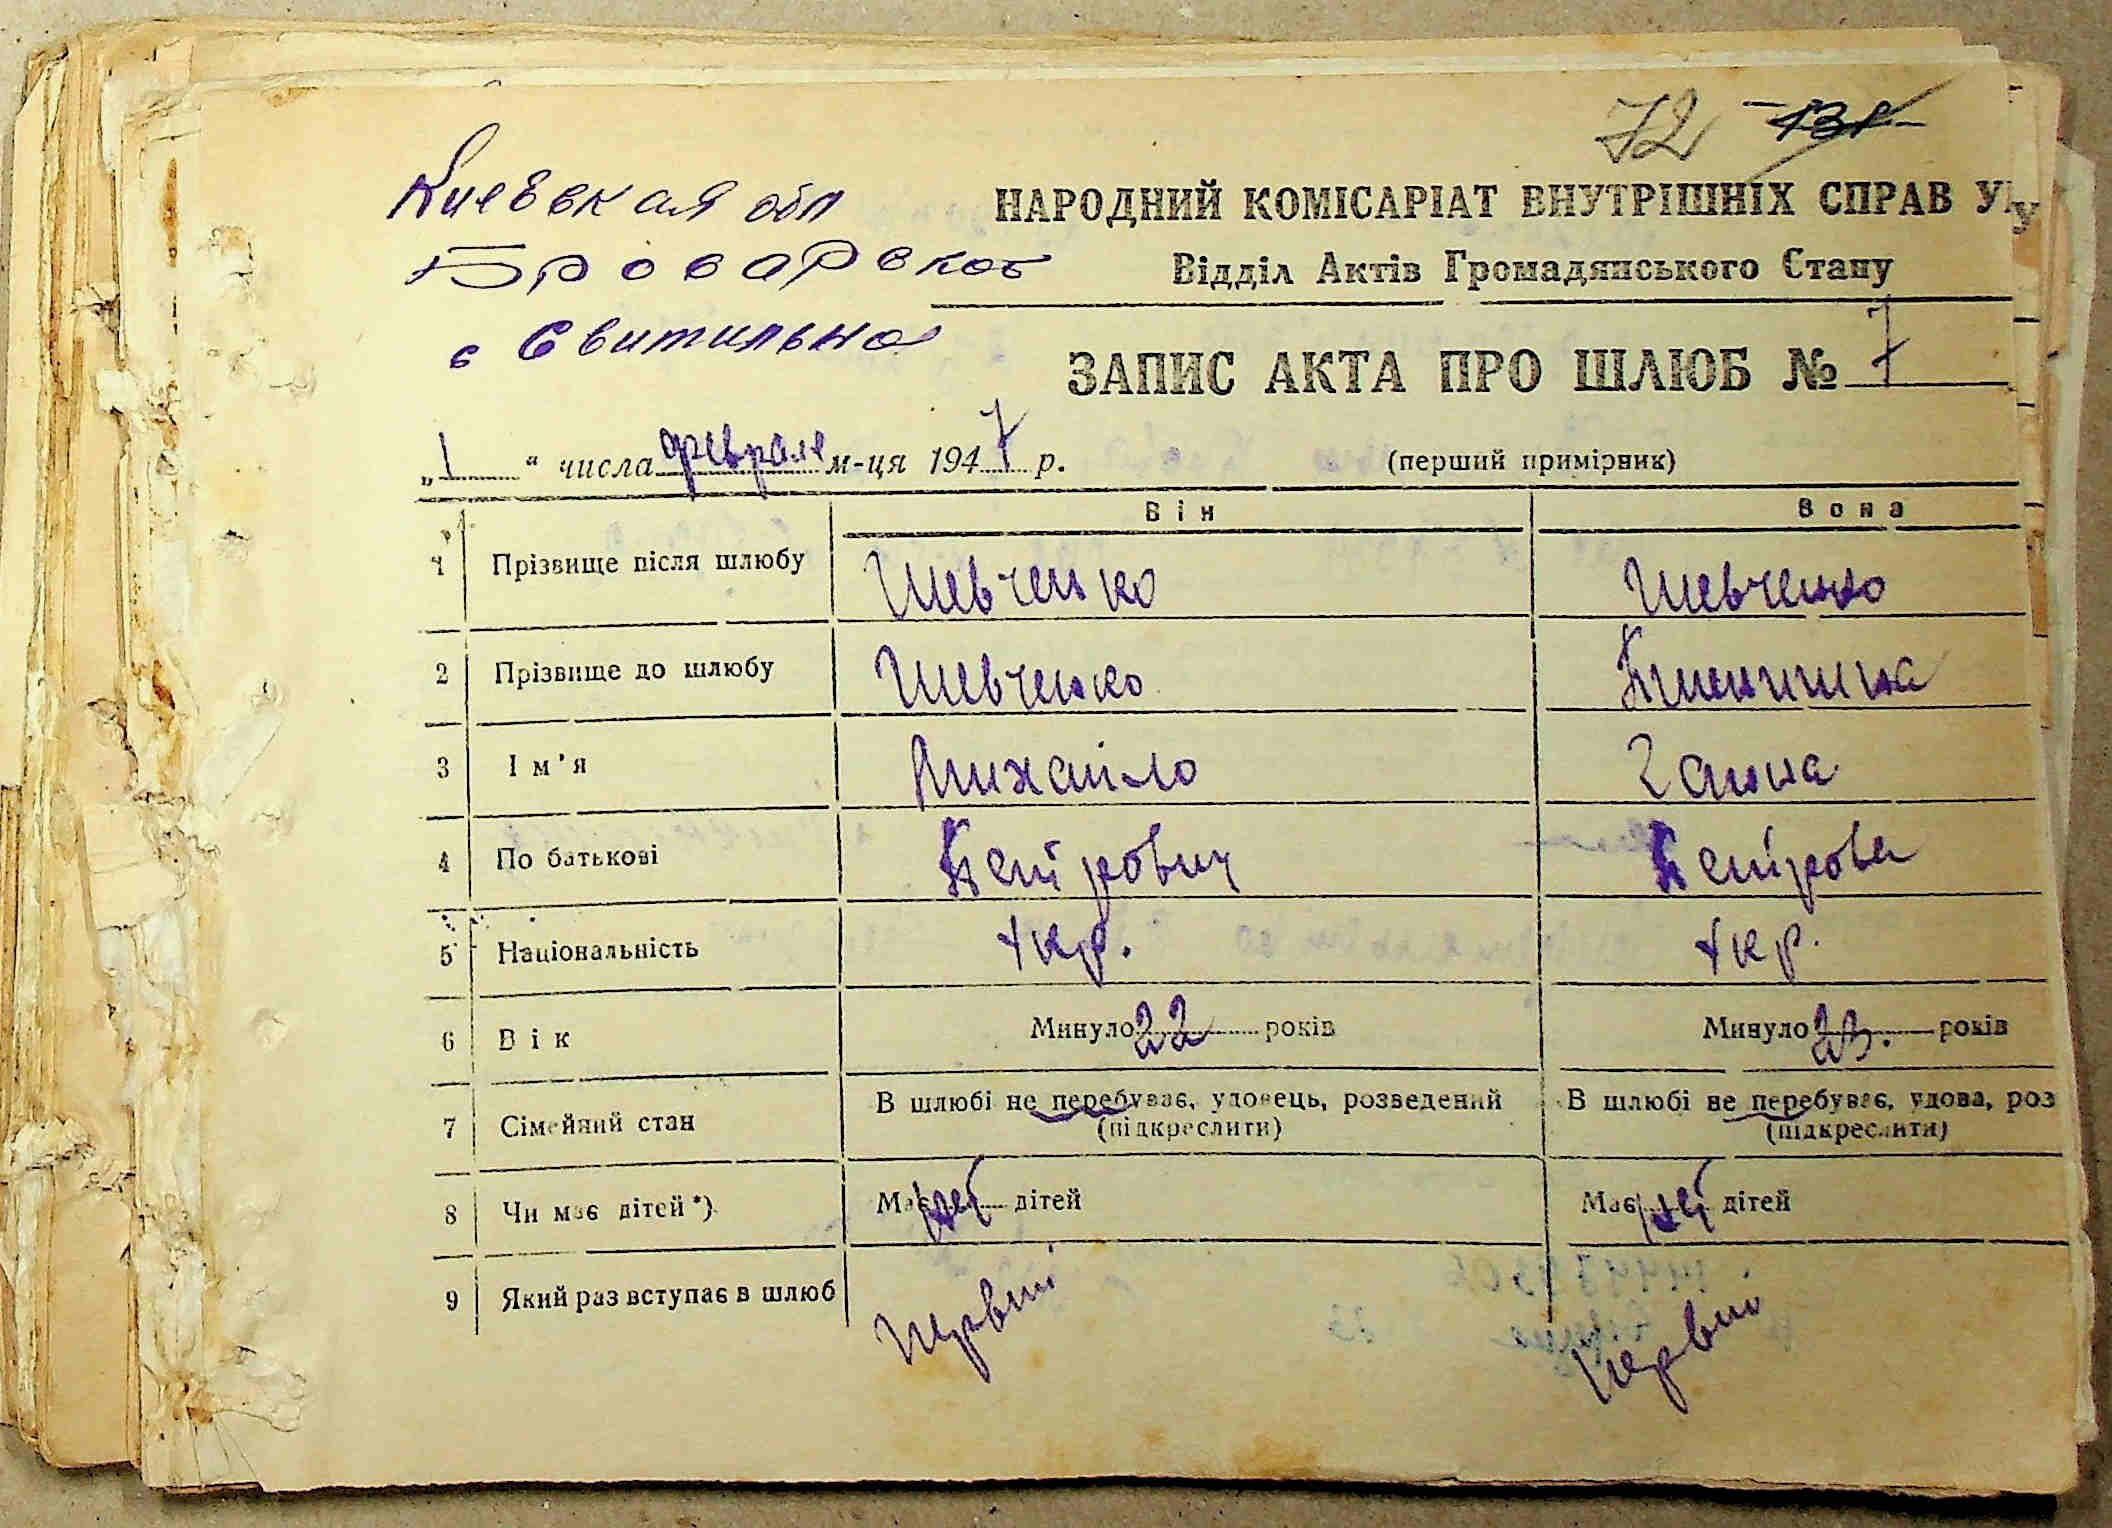 72
Киевская обл
Броварског
с Свитильна
НАРОДНИЙ КОМІСАРІАТ ВНУТРІШНІХ СПРАВ
Відділ Актів Громадянського Стану
ЗАПИС АКТА ПРО ШЛЮБ № 7
„1" числа февраля м-ця 1947 р. (перший примірник)
Він Вона
1 Прізвище після шлюбу Шевченко Шевченко
2 Прізвище до шлюбу Шевченко
3 Ім'я Михайло Ганна
4 По батькові Петрович Петровна
5 Національність Укр. Укр.
6 Вік Минуло 22 років Минуло 23. років
7 Сімейний стан В шлюбі не перебуває, удовець, розведений В шлюбі не перебуває, удова, роз
(підкреслити) (підкреслити)
8 Чи має дітей*) Має нет дітей Має нет дітей
9 Який раз вступає в шлюб